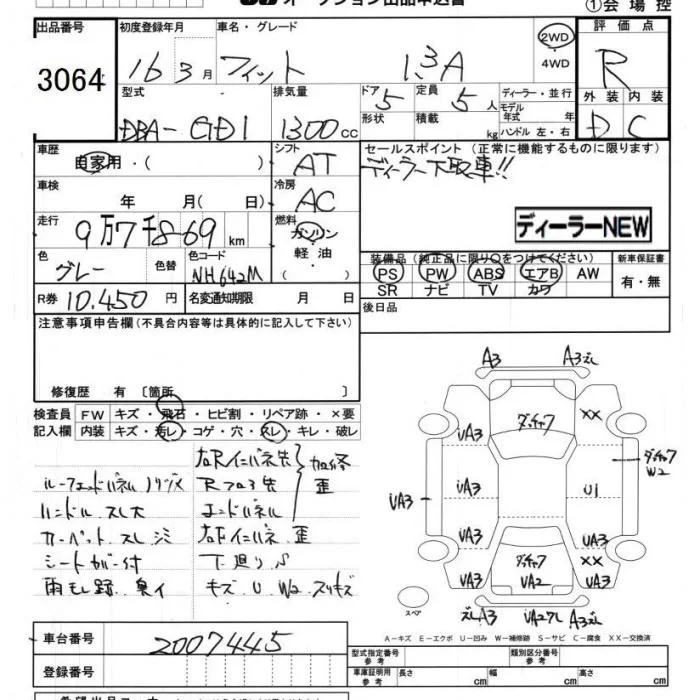 オークション出品申込書
①会場控
出品番号 初度登録年月 車名・グレード 2WD 評価点
3064 16 3月 フィット 1.3A 4WD R
型式 排気量 ドア 定員 ディーラー・並行 外装 内装
DBA-GD1 1300cc 5 5人 モデル年式 年 D C
形状 積載 kg ハンドル 左・右
車歴 自家用・( ) シフト AT セールスポイント (正常に機能するものに限ります)
ディーラー下取車!!
車検 年 月( 日) 冷房 AC
走行 9万7千869km 燃料 ガソリン ディーラーNEW
軽油
色 グレー 色替 色コード NH642M ( )
装備品 (純正品に限り○をつけてください) 新車保証書
PS PW ABS エアB AW 有・無
SR ナビ TV カワ
R券 10.450円 名変通知期限 月 日 後日品
注意事項申告欄(不具合内容等は具体的に記入して下さい)
修復歴 有 〔箇所 〕
検査員 FW キズ・飛石・ヒビ割・リペア跡・×要
記入欄 内装 キズ・汚レ・コゲ・穴・スレ・キレ・破レ
右Rインパネ先 加修
Rフロア先 歪
ハンドル スレ大 エンドパネル
カーペット スレ シミ 右Fインパネ 歪
シートカバー付 下廻りS
雨モレ跡 臭イ キズ U W2 スリキズ
A3 A3ズレ
ダッチャク XX
UA3
ダッチャク
W2
UA3 UA3 U1
UA3 UA3
ダッチャク XX
UA3 UA2 UA3
スペア
ズレA3 UA2ワレ A3ズレ
A-キズ E-エクボ U-凹み W-補修跡 S-サビ C-腐食 XX-交換済
車台番号 2007445
型式指定番号 参考 類別区分番号 参考
登録番号
車庫証明用 参考 長さ cm 幅 cm 高さ cm